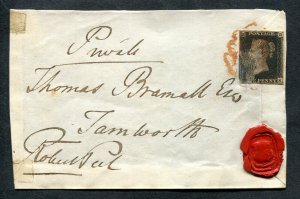 POSTAGE
Private
Thomas Bramall Esq
Tamworth
Robert Peel